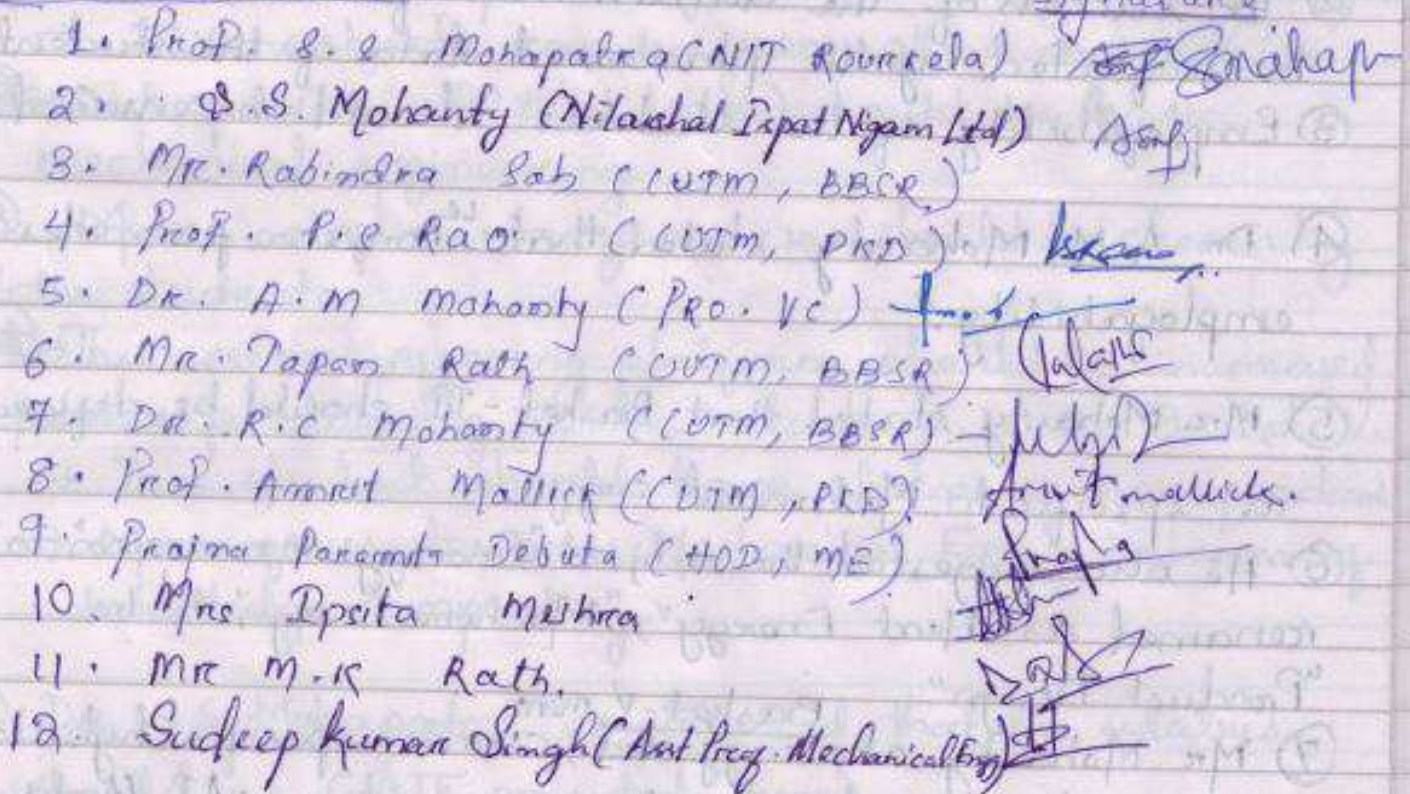 Signature
1. Prof. S. S Mohapatra (NIT Rourkela)
2. S.S. Mohanty (Nilachal Ispat Nigam Ltd)
3. Mr. Rabindra Sah (CUTM, BBSR)
4. Prof. P.S Rao (CUTM, PKD)
5. Dr. A.M Mohanty (PRO. VC)
6. Mr. Tapan Rath (CUTM, BBSR)
7. Dr. R.C Mohanty (CUTM, BBSR)
8. Prof. Amrit Mallick (CUTM, PKD) Amrit mallick.
9. Prajna Paramita Debata (HOD, ME)
10. Mrs Ipsita Mishra
11. Mr M.K Rath.
12. Sudeep Kumar Singh (Asst Prof. Mechanical Eng)